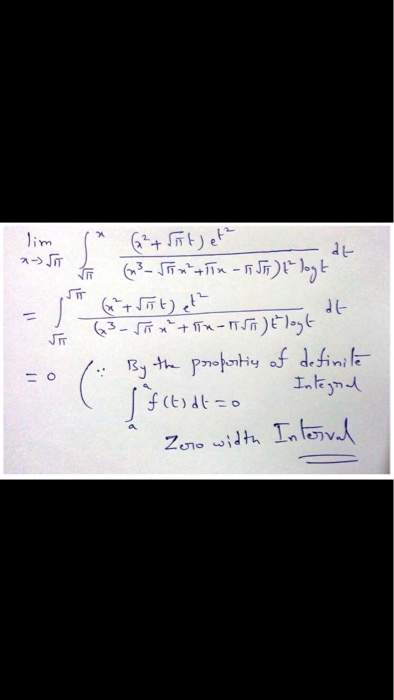 lim x→√π ∫_{√π}^{x} (x²+√π t) e^{t²} / (x³-√π x²+πx-π√π) t² log t dt
= ∫_{√π}^{√π} (x²+√π t) e^{t²} / (x³-√π x²+πx-π√π) t² log t dt
= 0 (∵ By the properties of definite
Integral
∫_{a}^{a} f(t) dt = 0
Zero width Interval